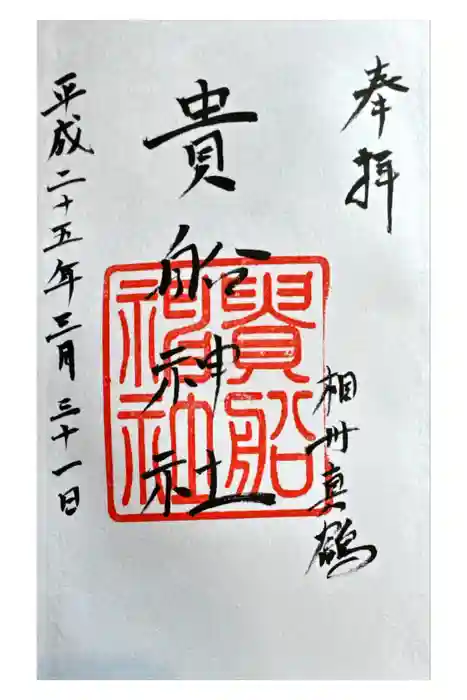 奉拝
相州真鶴
貴船神社
貴船
神社
平成二十五年三月三十一日